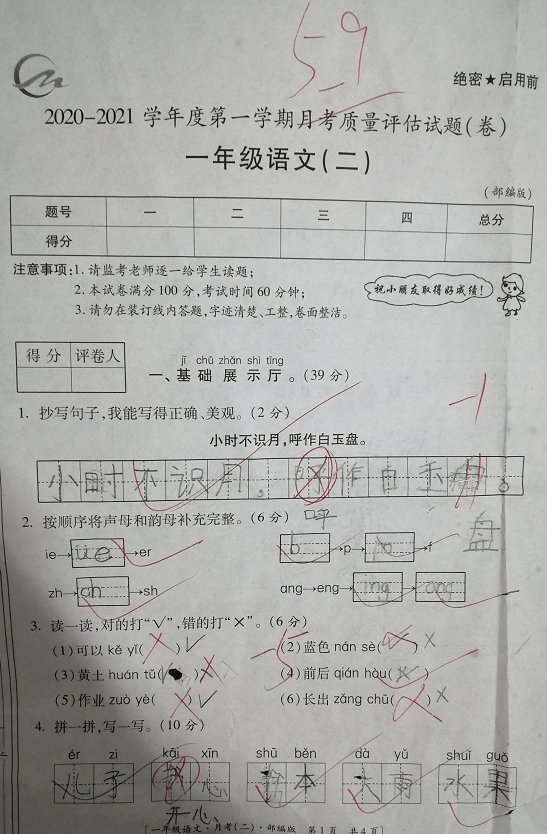 59
绝密★启用前
2020-2021 学年度第一学期月考质量评估试题(卷)
一年级语文(二)
(部编版)
题号 一 二 三 四 总分
得分
注意事项:1. 请监考老师逐一给学生读题;
2. 本试卷满分 100 分,考试时间 60 分钟;
3. 请勿在装订线内答题,字迹清楚、工整,卷面整洁。
祝小朋友取得好成绩!
得分 评卷人
jī chǔ zhǎn shì tīng
一、基础展示厅。(39 分)
1. 抄写句子,我能写得正确、美观。(2 分)
-1
小时不识月,呼作白玉盘。
小时不识月,呼作白玉盘。
2. 按顺序将声母和韵母补充完整。(6 分) 呼
盘
ie→üe→er b→p→m→f
zh→ch→sh ang→eng→ing→ong
3. 读一读,对的打“√”,错的打“×”。(6 分)
-5
(1)可以 kě yǐ(×)√ (2)蓝色 nán sè( )×
(3)黄土 huán tǔ( )× (4)前后 qián hòu(×)
(5)作业 zuò yè(×)√ (6)长出 zǎng chū( )×
4. 拼一拼,写一写。(10 分)
ér zi kāi xīn shū běn dà yǔ shuǐ guǒ
儿子 心 本 大雨 水果
开心、
[一年级语文·月考(二)·部编版 第1页 共4页]